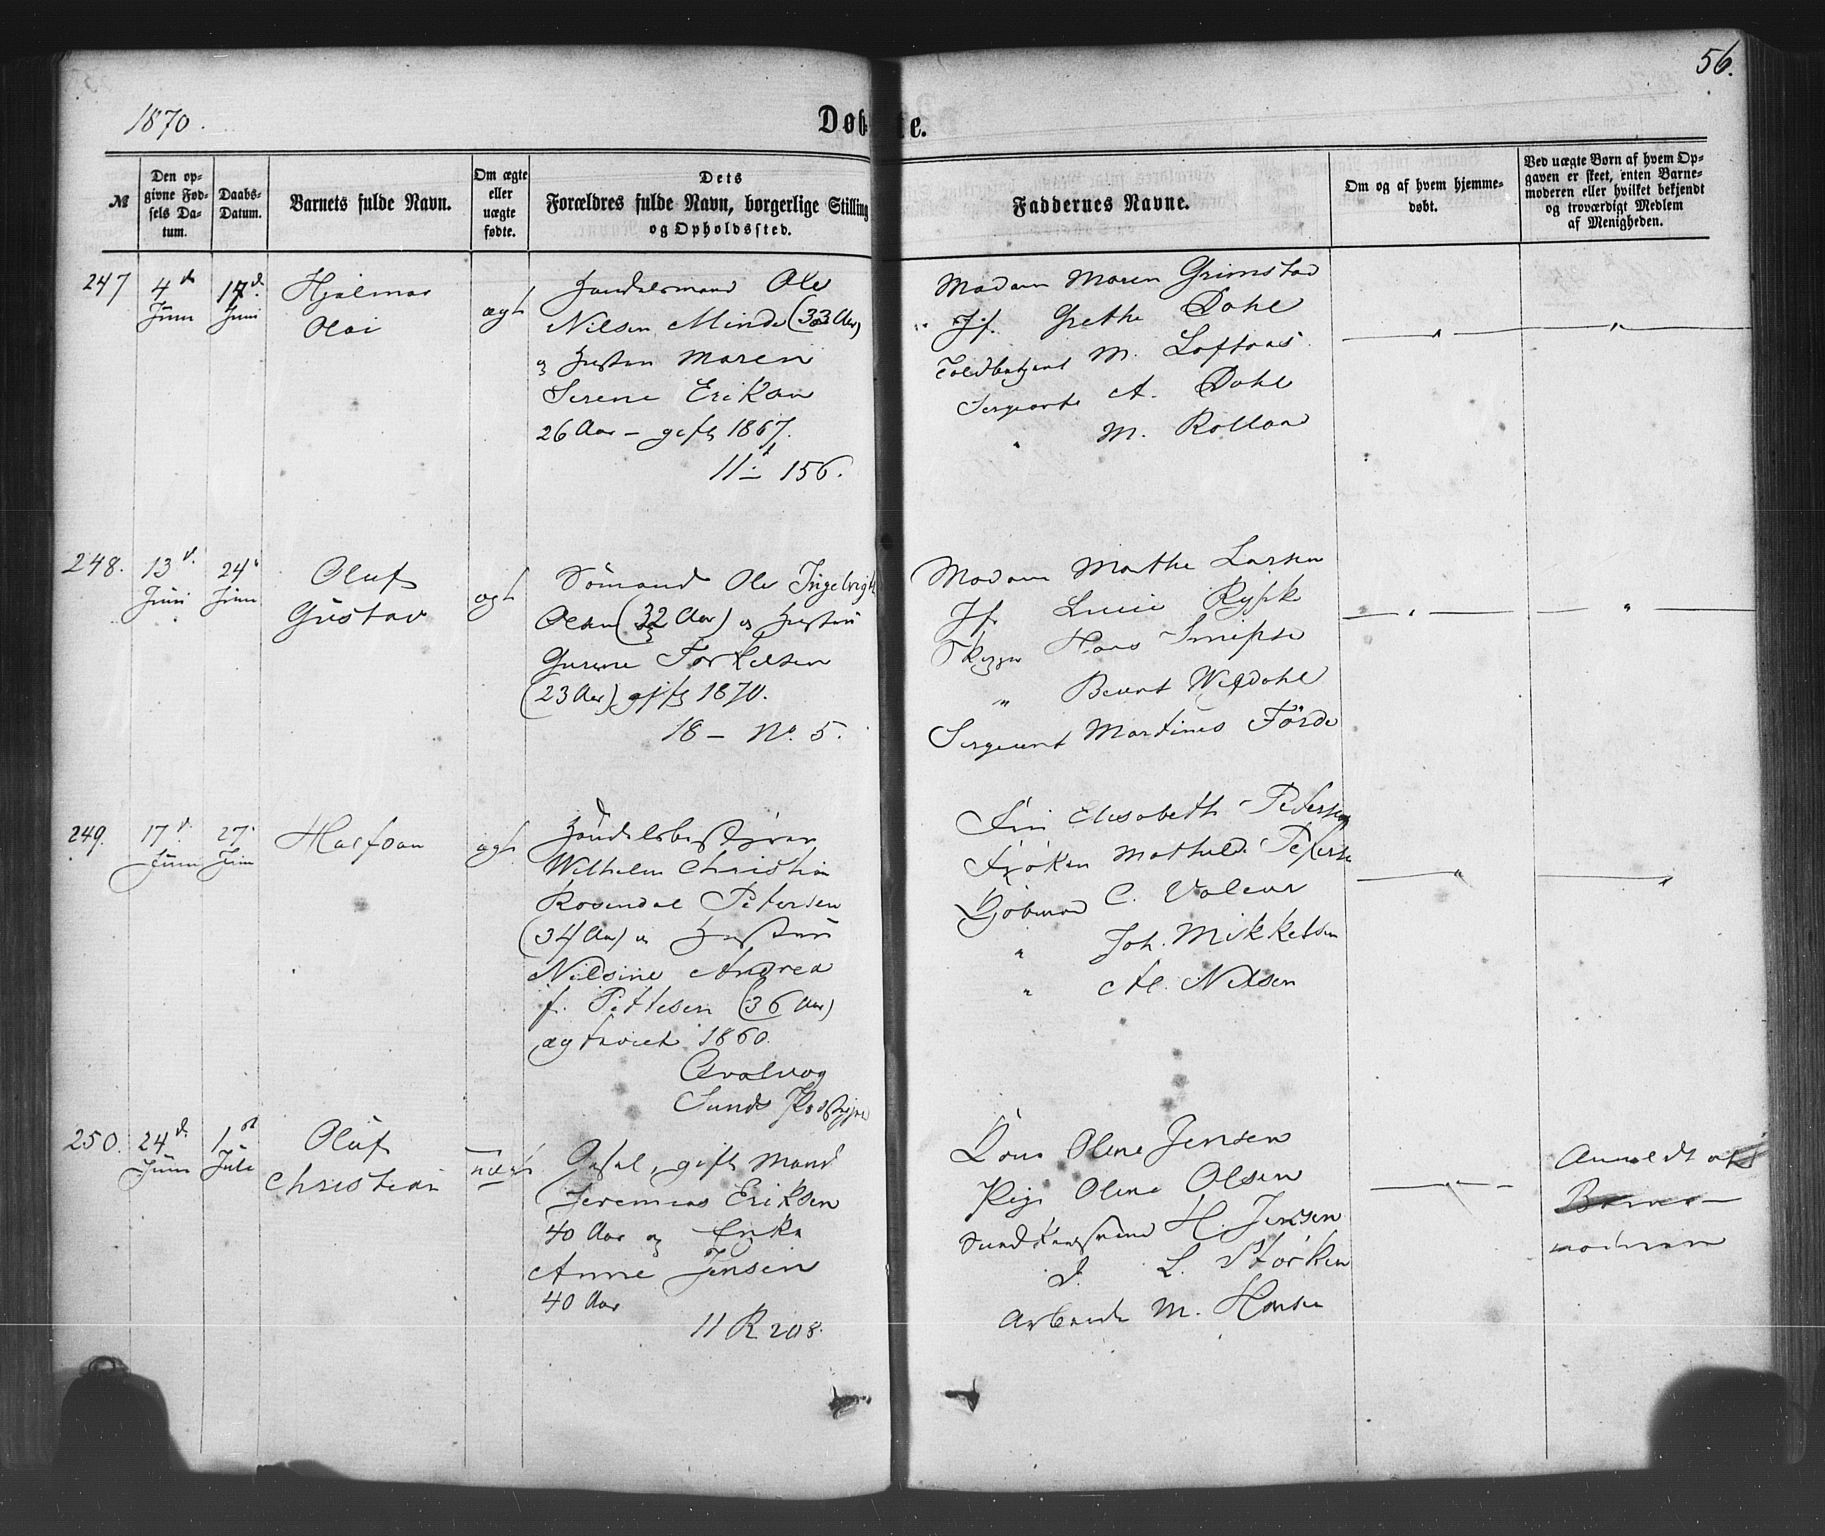 56.
1870.
Døbte.
№
Den op-
givne Fød-
sels Da-
tum.
Daabs-
Datum.
Barnets fulde Navn.
Om ægte
eller
uægte
fødte.
Dets
Forældres fulde Navn, borgerlige Stilling
og Opholdssted.
Faddernes Navne.
Om og af hvem hjemme-
døbt.
Ved uægte Børn af hvem Op-
gaven er skeet, enten Barne-
moderen eller hvilket bekjendt
og troværdigt Medlem
af Menigheden.
247
4
Juni
17
Juni
Hjalmar
Olai
ægt
Handelsmand Ole
Nilsen Minde (33 Aar)
og Hustru Maren
Serene Eriksen
26 Aar – gift 1867.
11 – 156.
Madam Maren Grimstad
Jf. Grethe Dahl
Toldbetjent M. Loftaas
Sergeant A. Dahl
" M. Rollan
248.
13
Juni
24
Juni
Oluf
Gustav
ægt
Sömand Ole Ingebrigt
Olsen (32 Aar) og Hustru
Gurine Torkelsen
(23 Aar) gift 1870.
18 – No. 5.
Madam Marthe Larsen
Jf. Lucie
Hans
" Berent
Sergeant Martines Förde
249.
17
Juni
27
Juni
Halfdan
ægt
Handelsbestyrer
Wilhelm Christian
Rosendal Petersen
(34 Aar) og Hustru
Nilsine Andrea
f. Pettesen (36 Aar)
ægteviet 1860.
Fru Elisabeth Petersen
Frøken Mathilde Petersen
Kjöbmand C. Valeur
" Joh. Mikkelsen
" Nilsen
250.
24
Juni
1
Juli
Oluf
Christian
uægt
gift Mand
Jeremias Eriksen
40 Aar og Enke
Anne Jensen
40 Aar
11 R 208.
Kone Oline Jensen
Pige Oline Olsen
H. Jensen
d. L. Störksen
Arbeids M. Hansen
Anmeldt af
Barne-
moderen